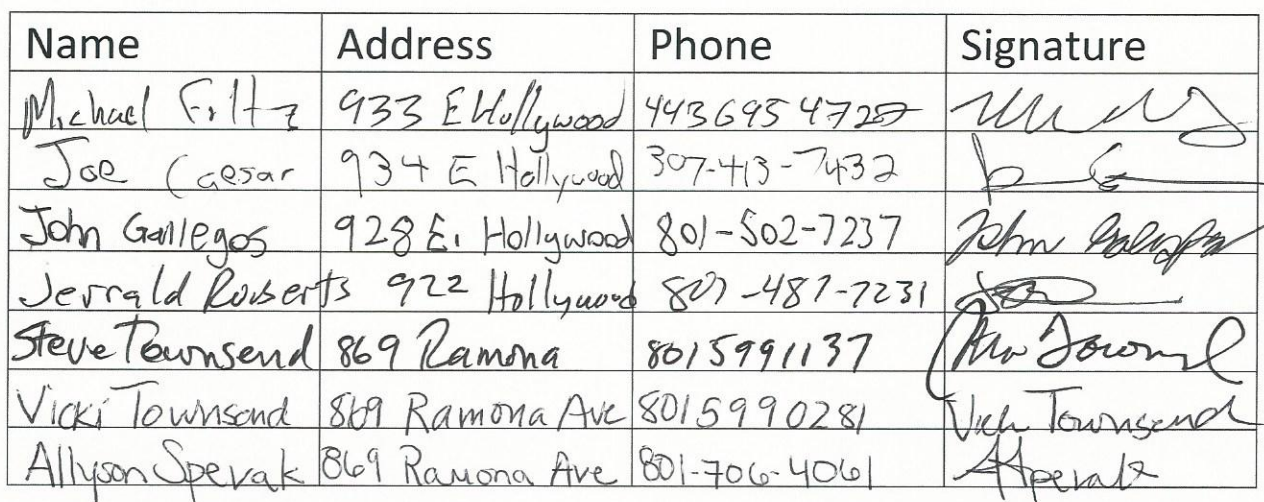 Name Address Phone Signature
Michael Filtz 933 E Hollywood 443695472
Joe Caesar 934 E Hollywood 307-413-7432
John Gallegos 928 E. Hollywood 801-502-7237 John
Jerrald Roberts 922 Hollywood 801-487-7231
Steve Townsend 869 Ramona 8015991137
Vicki Townsend 869 Ramona Ave 8015990281 Vicki Townsend
Allyson Spevak 869 Ramona Ave 801-706-4061 ASpevak